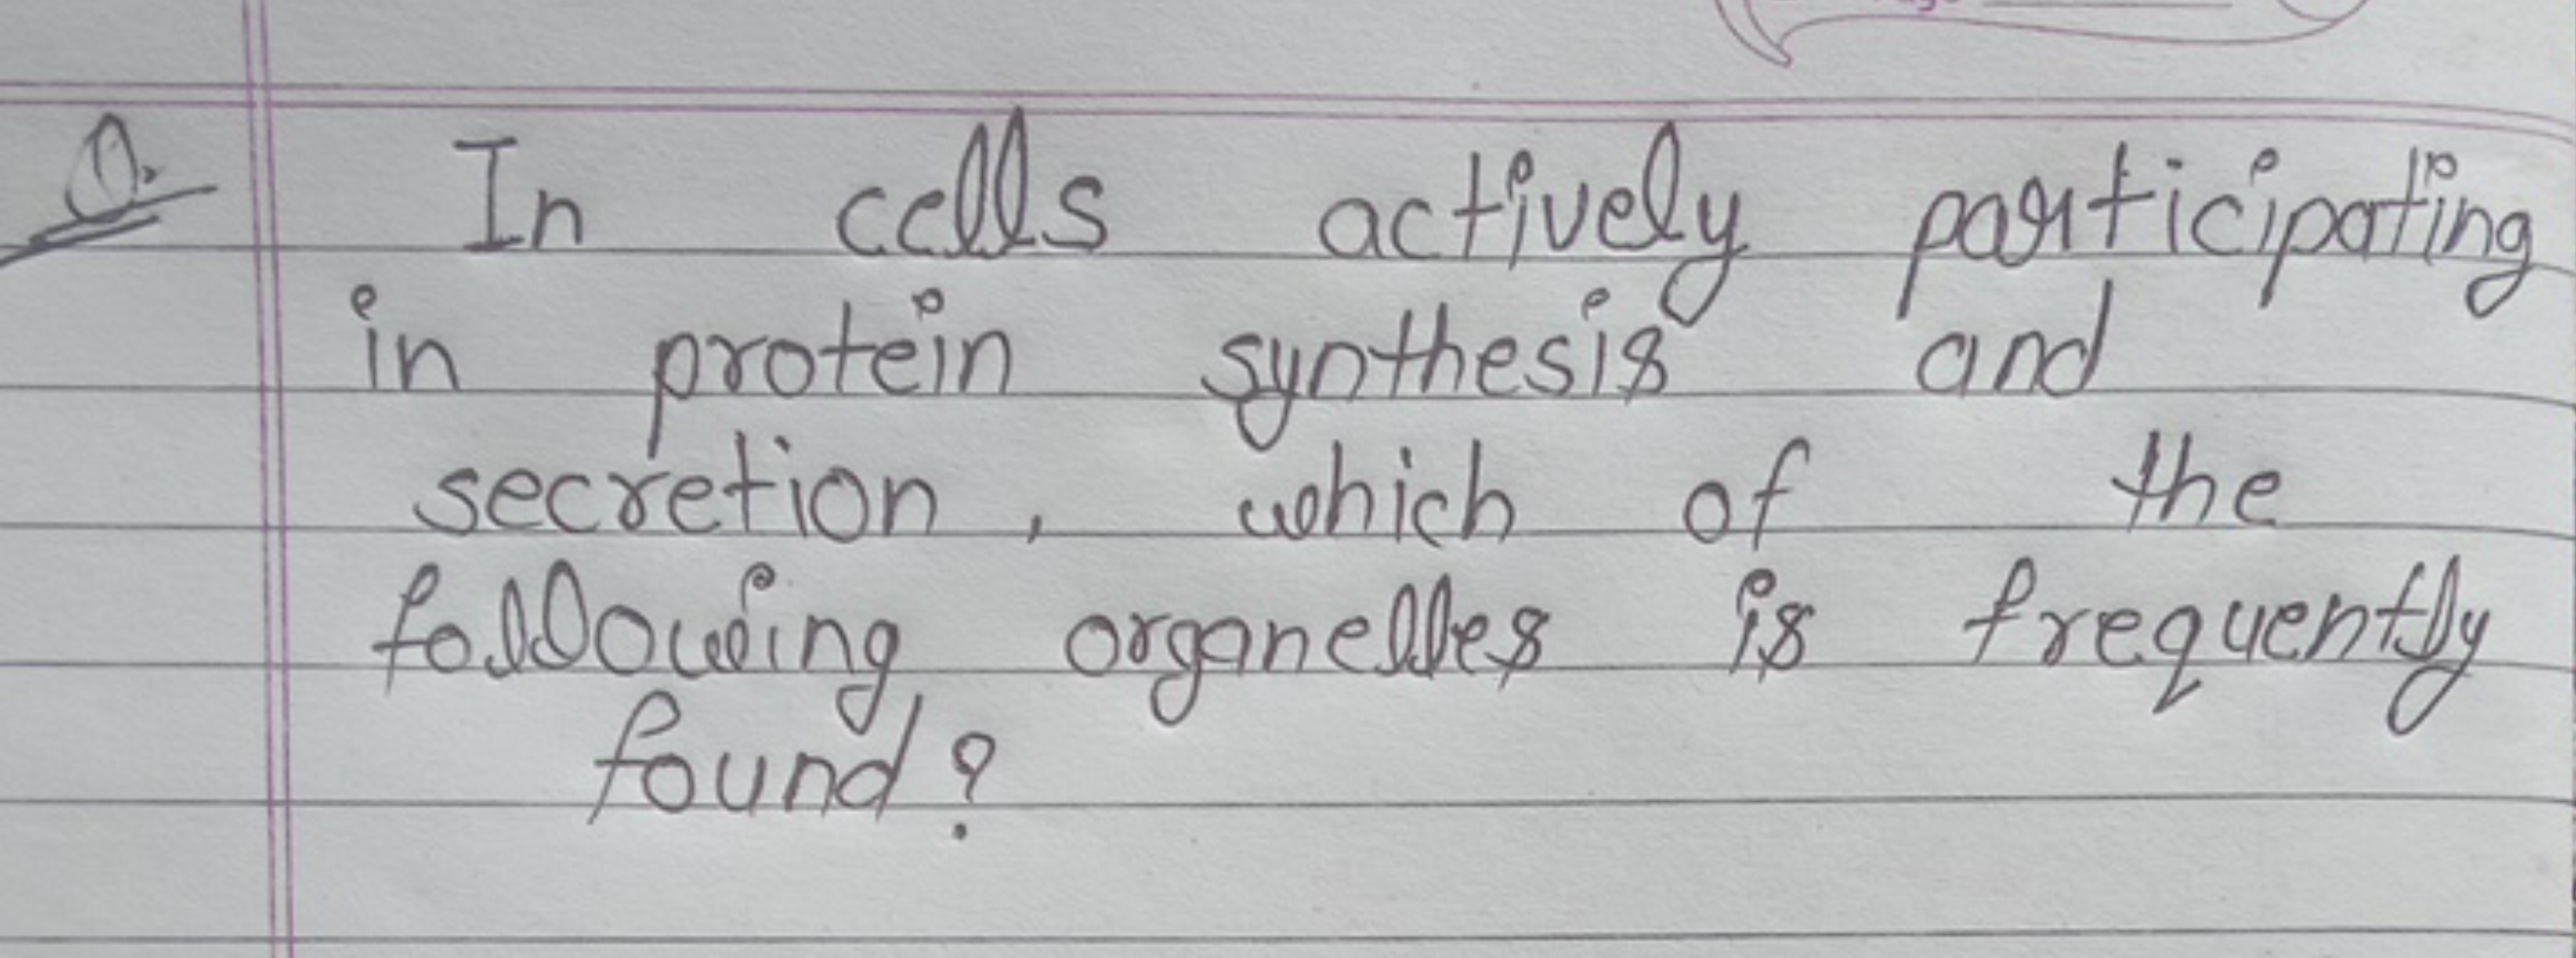 Q. In cells actively participating
in protein synthesis and
secretion, which of the
following organelles is frequently
found?